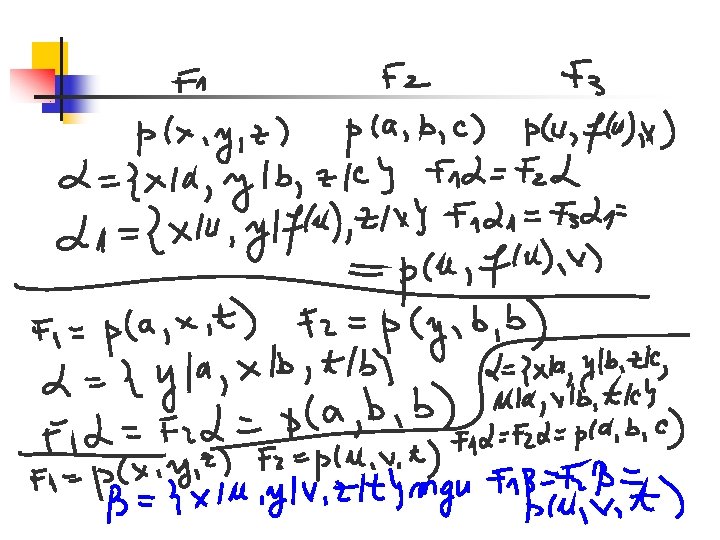 F1 F2 F3
p(x,y,z) p(a,b,c) p(u,f(u),v)
α={x/a, y/b, z/c} F1α=F2α
α1={x/u, y/f(u), z/v} F1α1=F3α1=
=p(u,f(u),v)
F1=p(a,x,t) F2=p(y,b,b)
α={y/a, x/b, t/b}
F1α=F2α=p(a,b,b)
α={x/a, y/b, z/c,
u/a, v/b, t/c}
F1α=F2α=p(a,b,c)
F1=p(x,y,z) F2=p(u,v,t)
β={x/u, y/v, z/t} mgu F1β=F2β=
p(u,v,t)